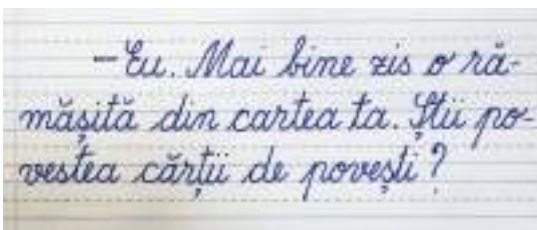 —Eu. Mai bine zis o ră-
mășită din cartea ta. Știi po-
vestea cărții de povești?